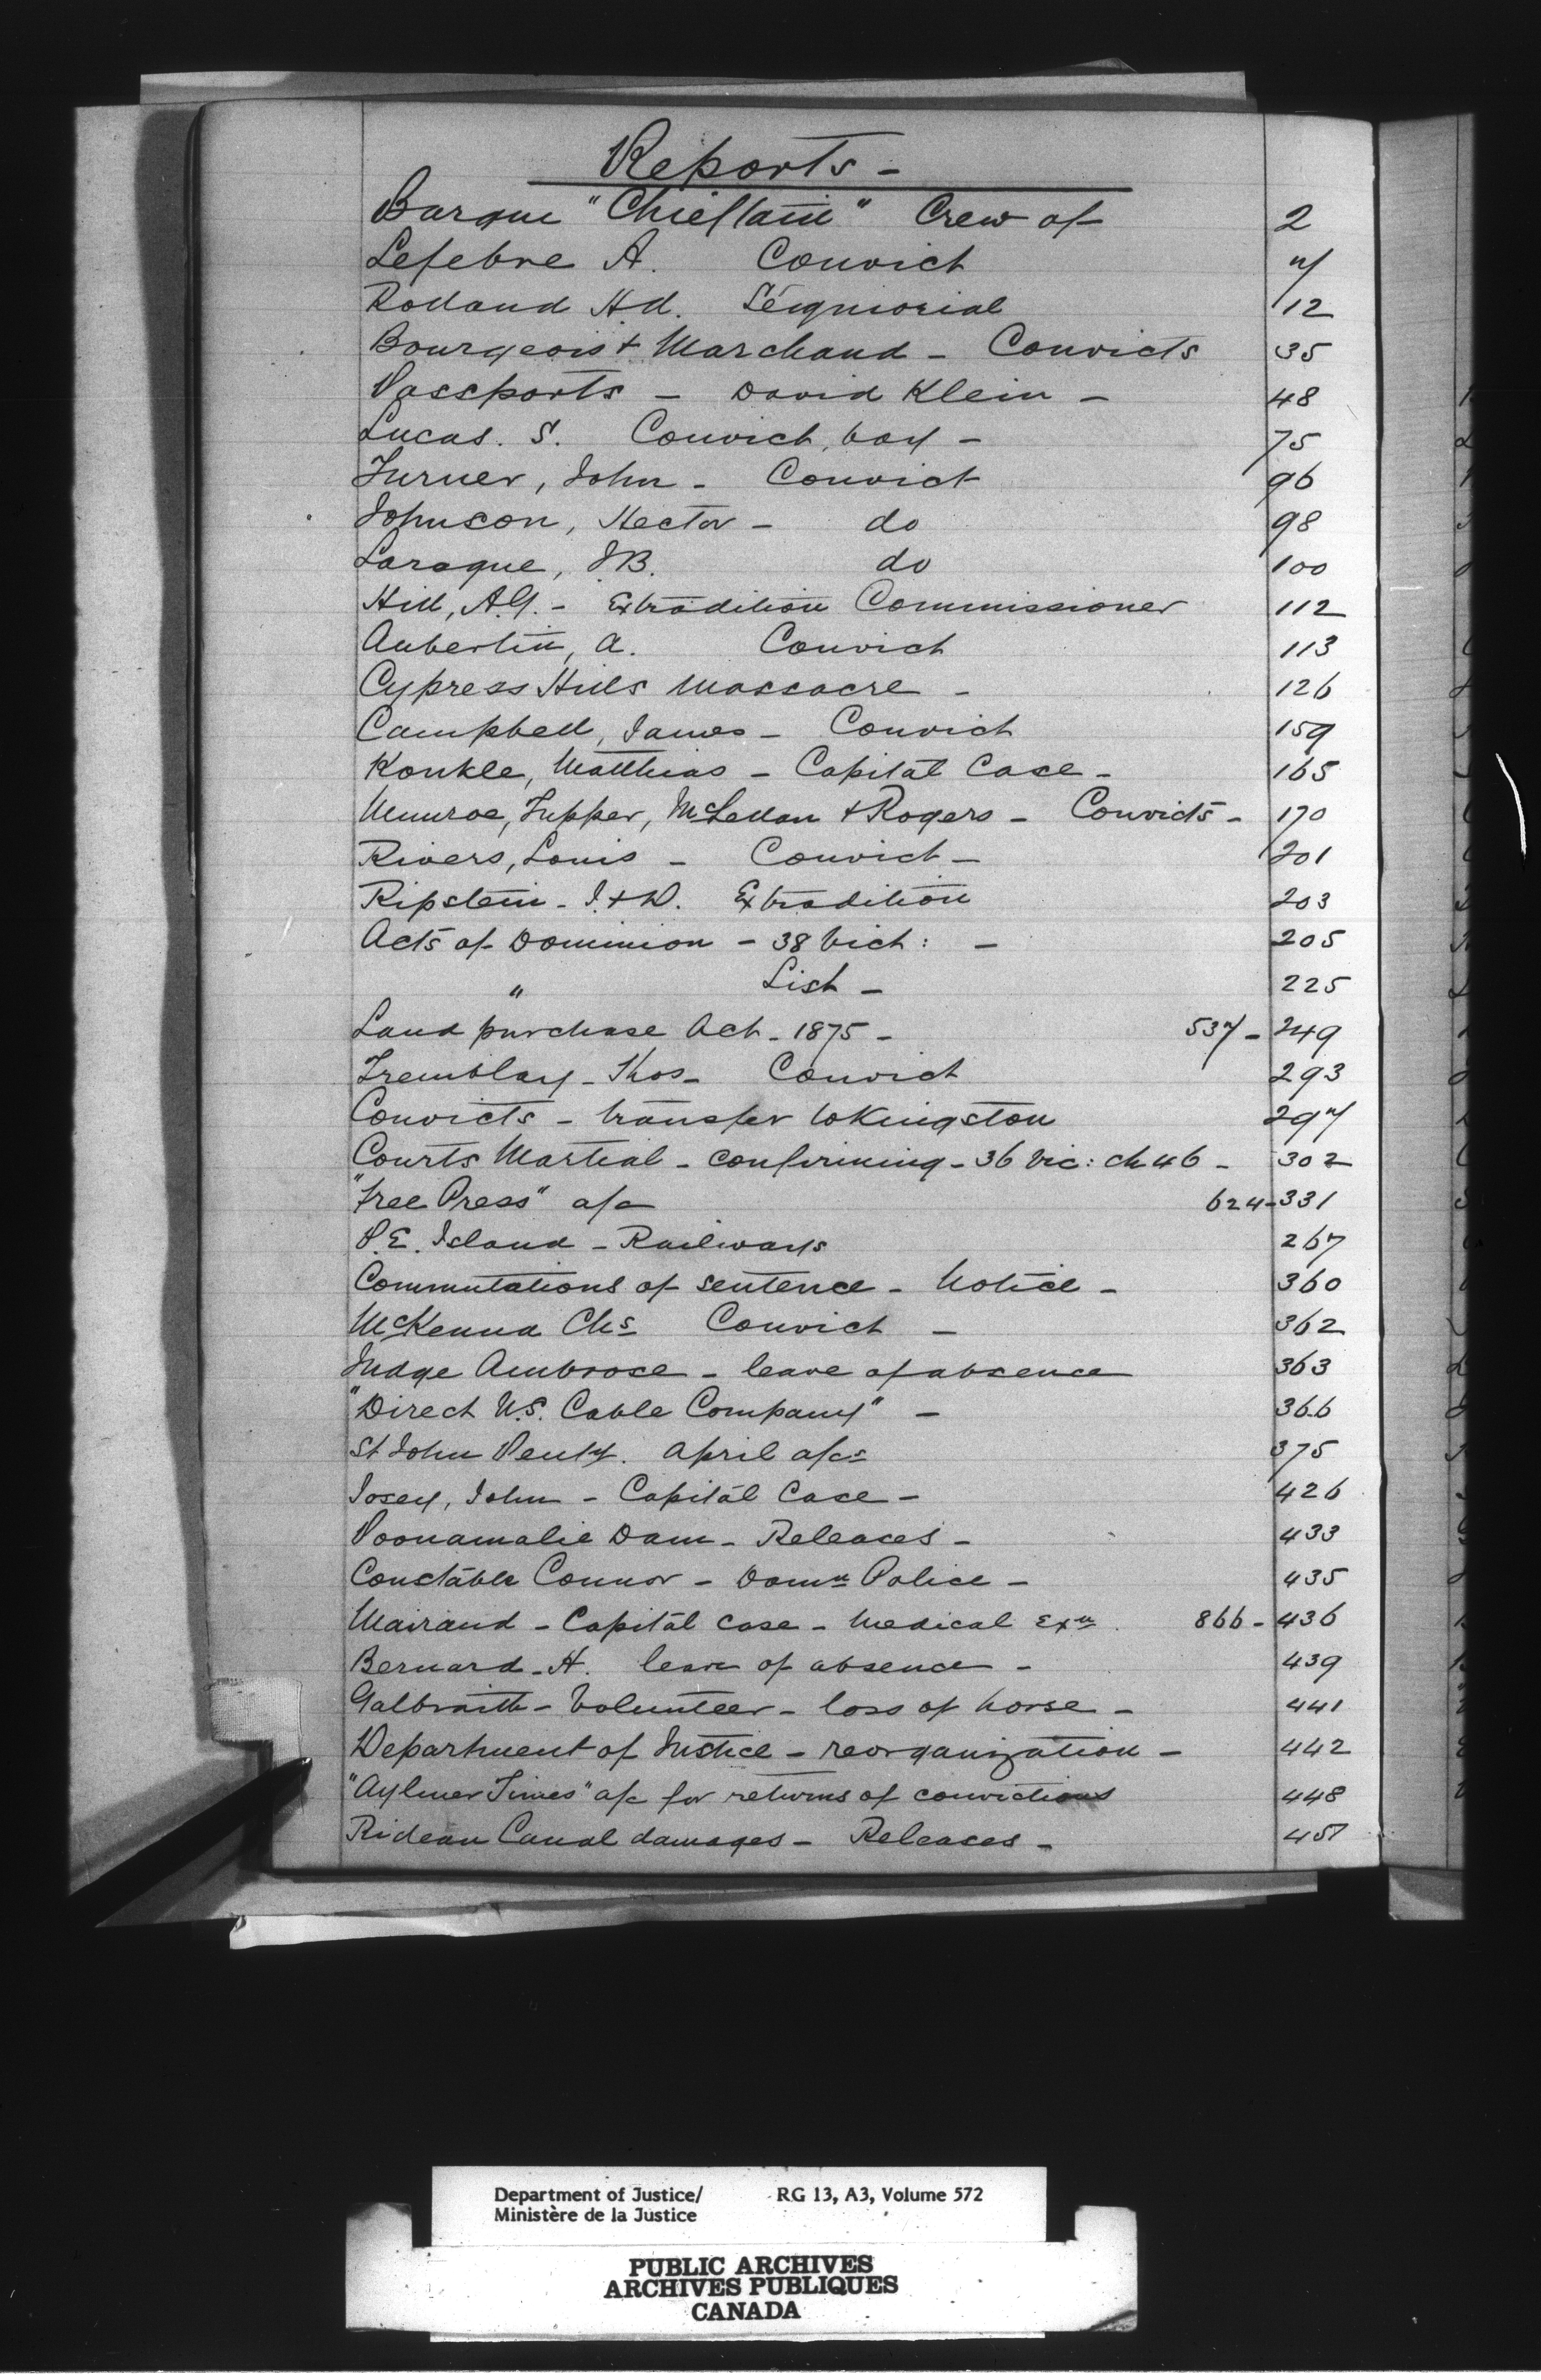 Reports -
Barque "Chieftain" Crew of 2
Lefebre A. Convict 7
Rolland Hd. Séigniorial 12
Bourgeois & Marchand - Convicts 35
Passports - David Klein - 48
Lucas. S. Convict, boy - 75
Turner, John - Convict 96
Johnson, Hector - do 98
Laroque, JB. do 100
Hill, A.G. - Extradition Commissioner 112
Aubertin, A. Convict 113
Cypress Hills Massacre - 126
Campbell, James - Convict 159
Konkle, Matthias - Capital Case - 165
Munroe, Tupper, McLellan & Rogers - Convicts - 170
Rivers, Louis - Convict - 201
Ripstein - I. & D. Extradition 203
Acts of Dominion - 38 Vict: - 205
" List - 225
Land purchase Act - 1875 - 537 - 249
Tremblay - Thos - Convict 293
Convicts - transfer to Kingston 297
Courts Martial - confirming - 36 Vic: ch 46 - 302
"Free Press" a/c 624 - 331
P.E. Island - Railways 267
Commutations of sentence - Notice - 360
McKenna Chs Convict - 362
Judge Ambrose - leave of absence 363
"Direct U.S. Cable Company" - 366
St John Penty. April a/cs 375
Josey, John - Capital Case - 426
Poonamalie Dam - Releases - 433
Constable Connor - Domn Police - 435
Mairand - Capital case - Medical Exn. 866 - 436
Bernard - H. leave of absence - 439
Galbraith - Volunteer - loss of horse - 441
Department of Justice - reorganization - 442
"Aylmer Times" a/c for returns of convictions 448
Rideau Canal damages - Releases - 451
Department of Justice/ RG 13, A3, Volume 572
Ministère de la Justice
PUBLIC ARCHIVES
ARCHIVES PUBLIQUES
CANADA